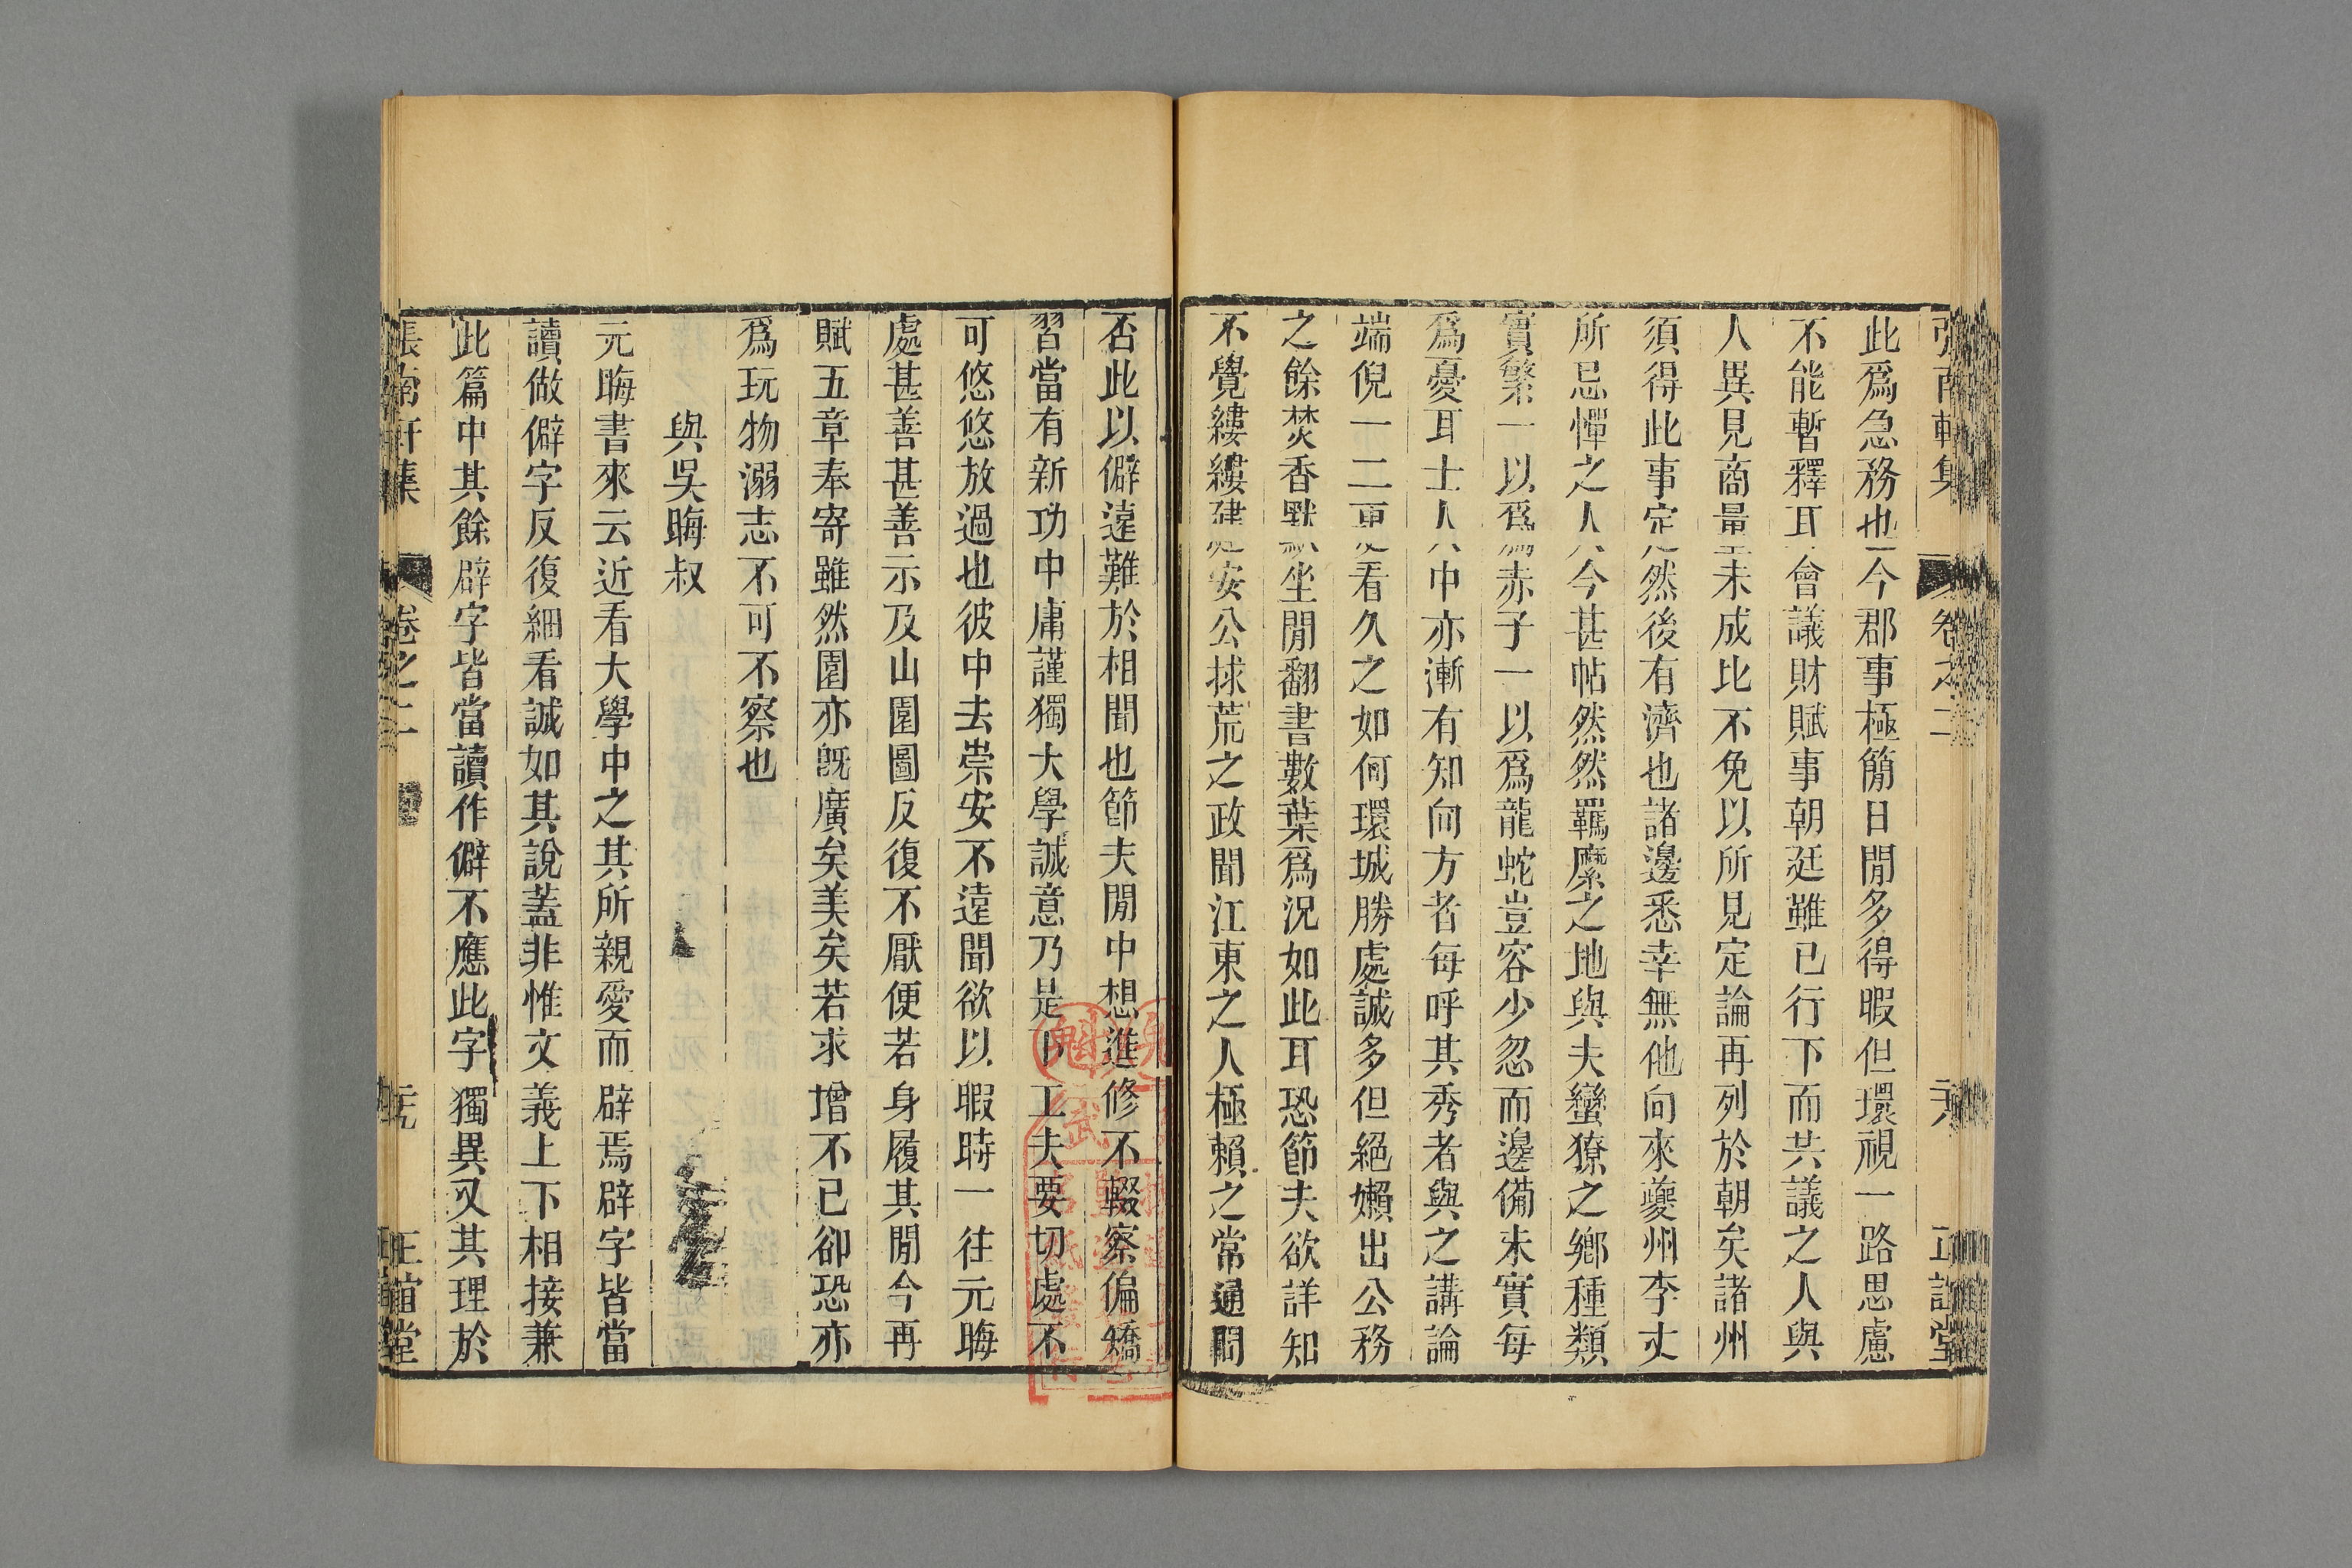 張南軒集 卷之二 六 正誼堂
此爲急務也今郡事極簡日閒多得暇但環視一路思慮
不能暫釋耳會議財賦事朝廷雖已行下而共議之人與
人異見商量未成比不免以所見定論再列於朝矣諸州
須得此事定然後有濟也諸邊悉幸無他向來夔州李丈
所忌憚之人今甚帖然然羈縻之地與夫蠻獠之鄉種類
實繁一以爲赤子一以爲龍蛇豈容少忽而邊備未實每
爲憂耳士人中亦漸有知向方者每呼其秀者與之講論
端倪一二更看久之如何環城勝處誠多但絕嬾出公務
之餘焚香默坐閒翻書數葉爲況如此耳恐節夫欲詳知
不覺縷縷建安公捄荒之政聞江東之人極賴之常通問
否此以僻遠難於相聞也節夫閒中想進修不輟察偏矯
習當有新功中庸謹獨大學誠意乃是下工夫要切處不
可悠悠放過也彼中去崇安不遠聞欲以暇時一往元晦
處甚善甚善示及山園圖反復不厭便若身履其閒今再
賦五章奉寄雖然園亦旣廣矣美矣若求增不已卻恐亦
爲玩物溺志不可不察也
與吳晦叔
元晦書來云近看大學中之其所親愛而辟焉辟字皆當
讀做僻字反復細看誠如其說蓋非惟文義上下相接兼
此篇中其餘辟字皆當讀作僻不應此字獨異又其理於
張南軒集 卷之二 元 正誼堂